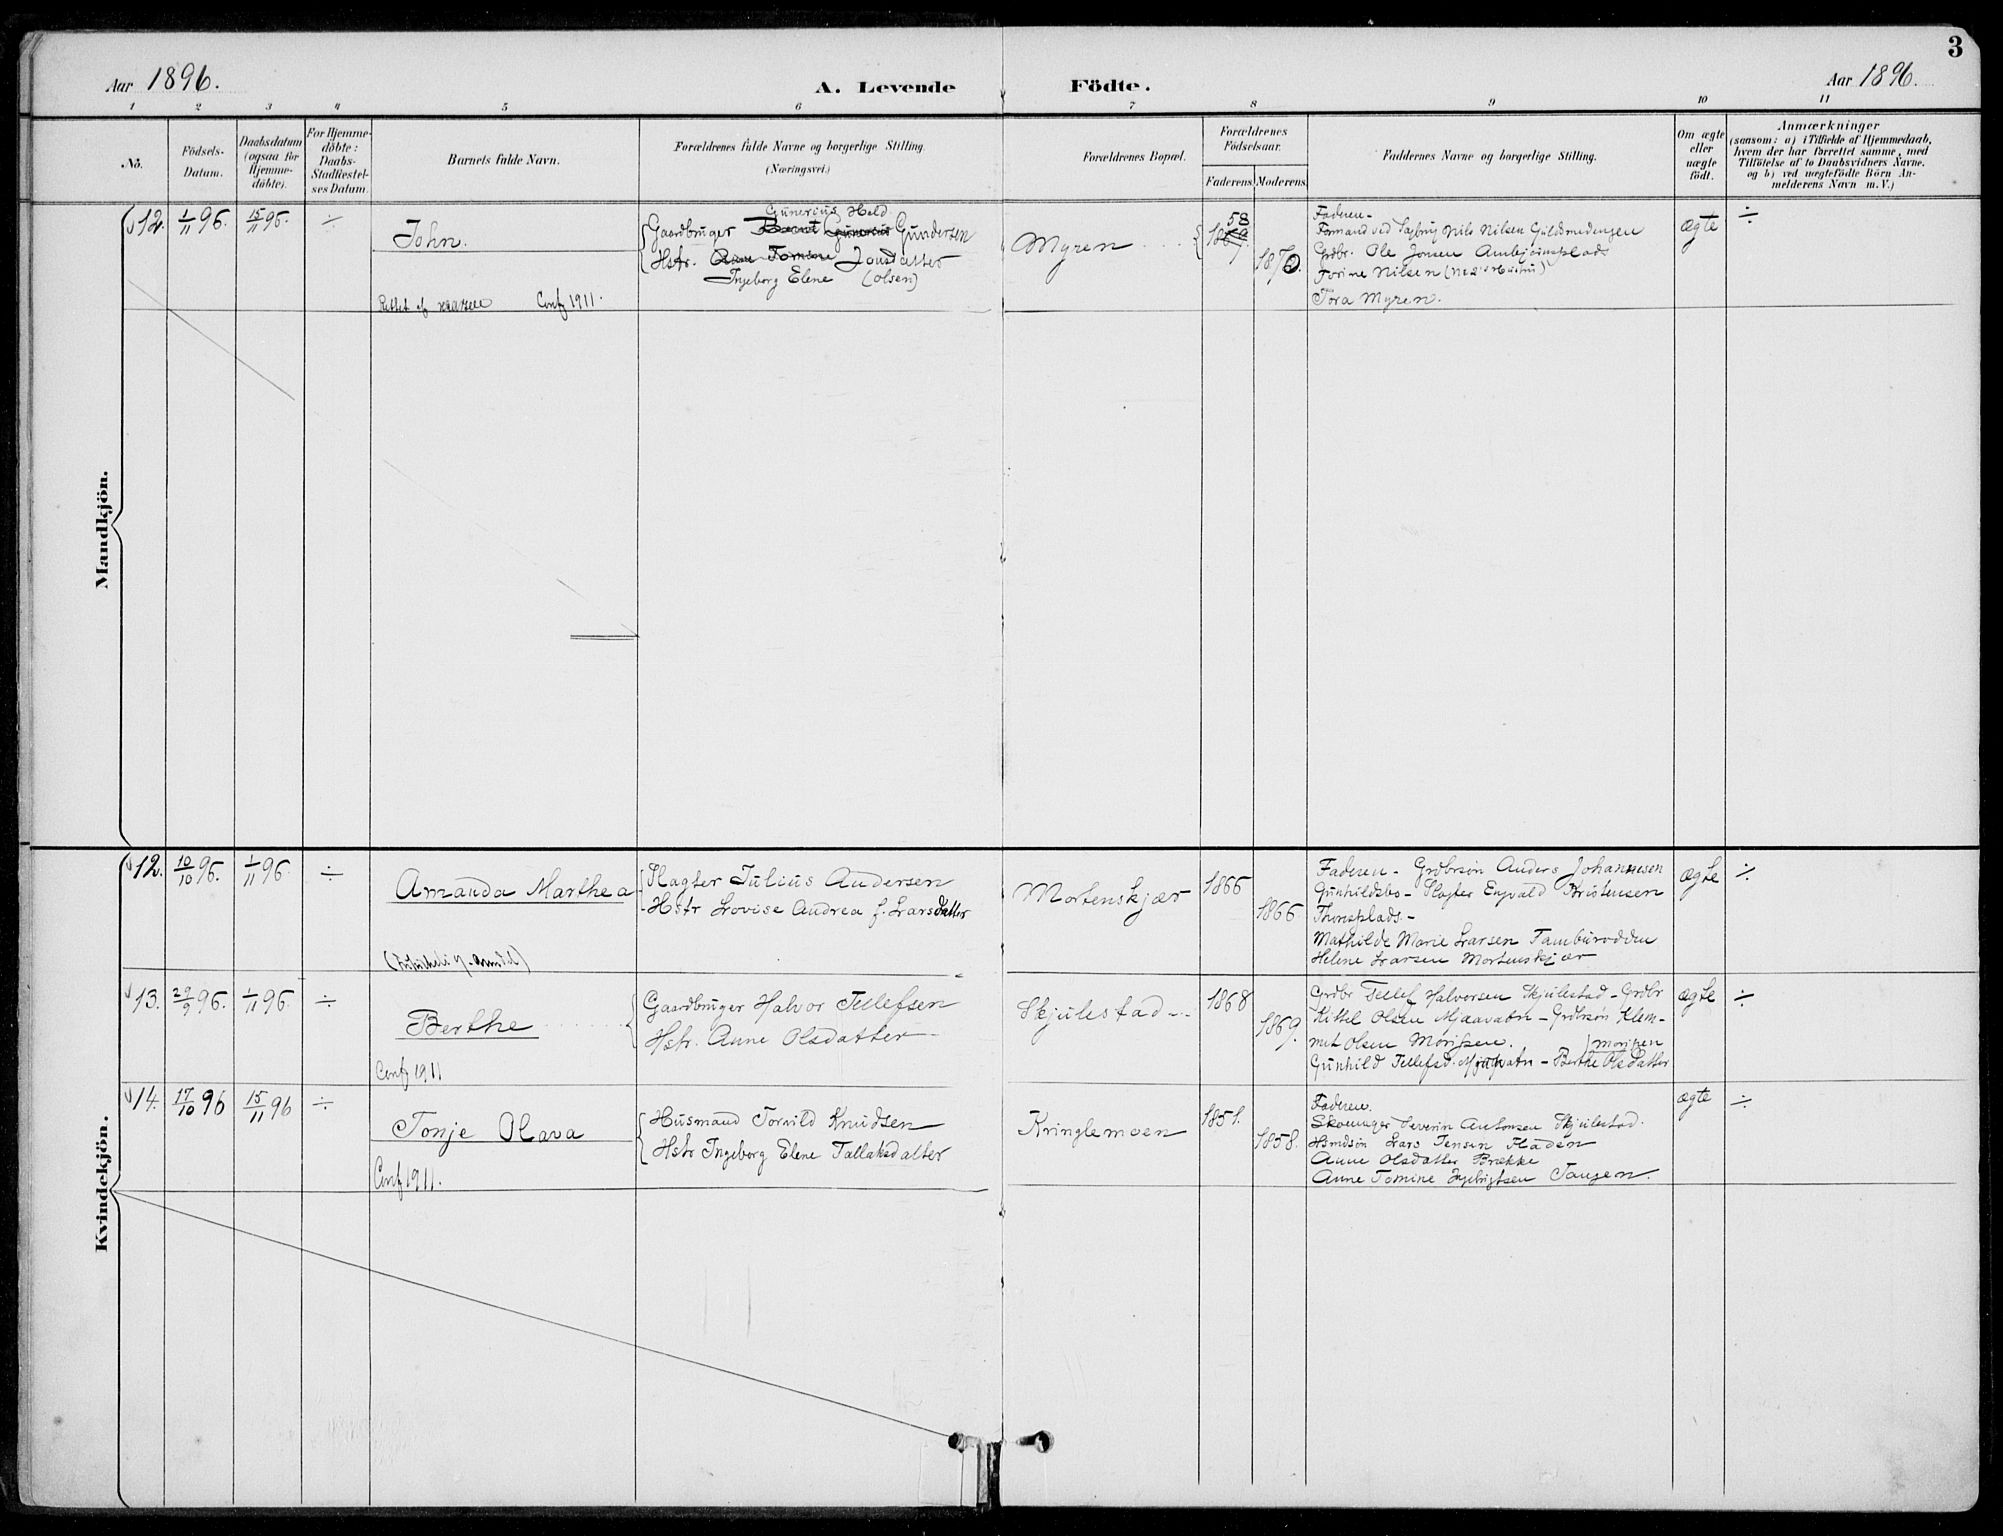 3
Aar 1896.
A. Levende Födte.
Aar 1896.
1 2 3 4 5 6 7 8 9 10 11
No.
Födsels-Datum.
Daabsdatum (ogsaa for Hjemme-döbte).
For Hjemme-döbte: Daabs-Stadfæstel-ses Datum.
Barnets fulde Navn.
Forældrenes fulde Navne og borgerlige Stilling. (Næringsvei.)
Forældrenes Bopæl.
Forældrenes Födselsaar.
Faderens. Moderens.
Faddernes Navne og borgerlige Stilling.
Om ægte eller uægte födt.
Anmærkninger
(saasom: a) i Tilfælde af Hjemmedaab,
hvem der har forrettet samme, med
Tilföielse af to Daabsvidners Navne.
og b) ved uægtefödte Börn An-
melderens Navn m. V.)
Mandkjön.
12. 1/11 96. 15/11 96. ÷
John.
Gunerius Held
Gaardbruger Bernt Gunerius Gundersen
Hstr. Anne Tomine Jonsdatter
Ingeborg Elene (Olsen)
Conf 1911.
Myren
58
1869
1870.
Faderen -
Formand ved Sagbrug Nils Nilsen Guldsmedengen
Grdbr. Ole Jonsen Ambjørnsplads
Torine Nilsen (N's Hustru)
Tora Myren.
ægte ÷
Kvindekjön.
12. 10/10 96. 1/11 96. ÷
Amanda Marthea
Slagter Julius Andersen
Hstr Lovise Andrea f. Larsdatter
Mortenskjær
1866
1866.
Faderen - Grdbrsön Anders Johannesen
Gunhildsbo - Slagter Engvald Kristensen
Thorsplads -
Mathilde Marie Larsen Tamburodden
Helene Larsen Mortenskjær
ægte ÷
13. 29/9 96. 1/11 96. ÷
Berthe
Gaardbruger Halvor Tellefsen
Hstr. Anne Olsdatter
Conf 1911
Skjulestad
1868
1869.
Grdbr Tellef Halvorsen Skjulestad - Grdbr
Kittel Olsen Mjaavatn - Grdbrsön Klem-
met Olsen Moripen.
moripen
Gunhild Tellefsd. Mjaavatn - Berthe Olsdatter
ægte ÷
14. 17/10 96 15/11 96 ÷
Tonje Olava
Husmand Torvild Knudsen
Hstr Ingeborg Elene Tallaksdatter
Conf 1911.
Kringlemoen
1851.
1858.
Faderen.
Skomager Severin Antonsen Skjulestad.
Hsmdsön Lars Jensen Fladen
Anne Olsdatter Brække
Anne Tomine Ingebrigtsen Tangen.
ægte ÷